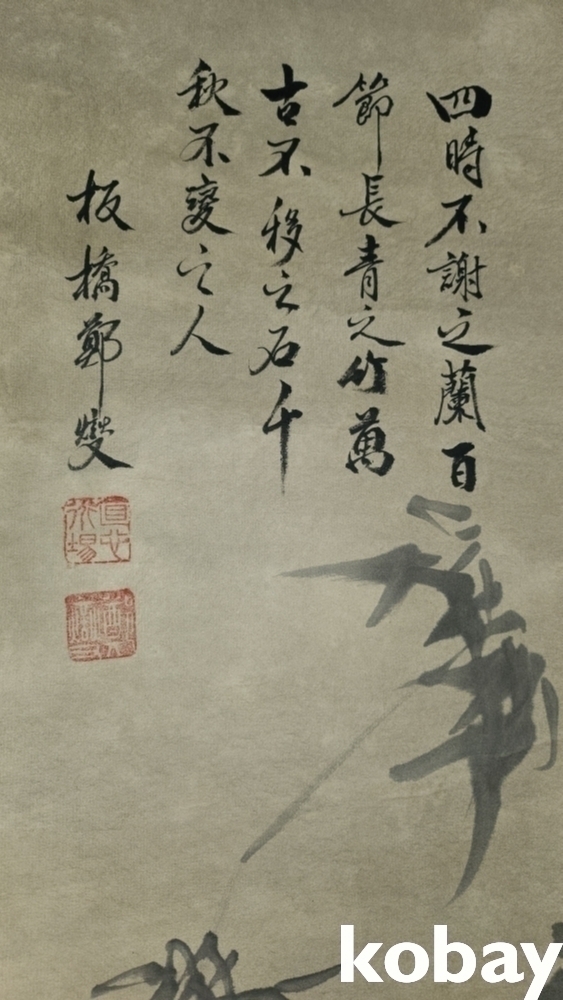 四時不謝之蘭百
節長青之竹萬
古不移之石千
秋不變之人
板橋鄭燮
直心道場
kobay